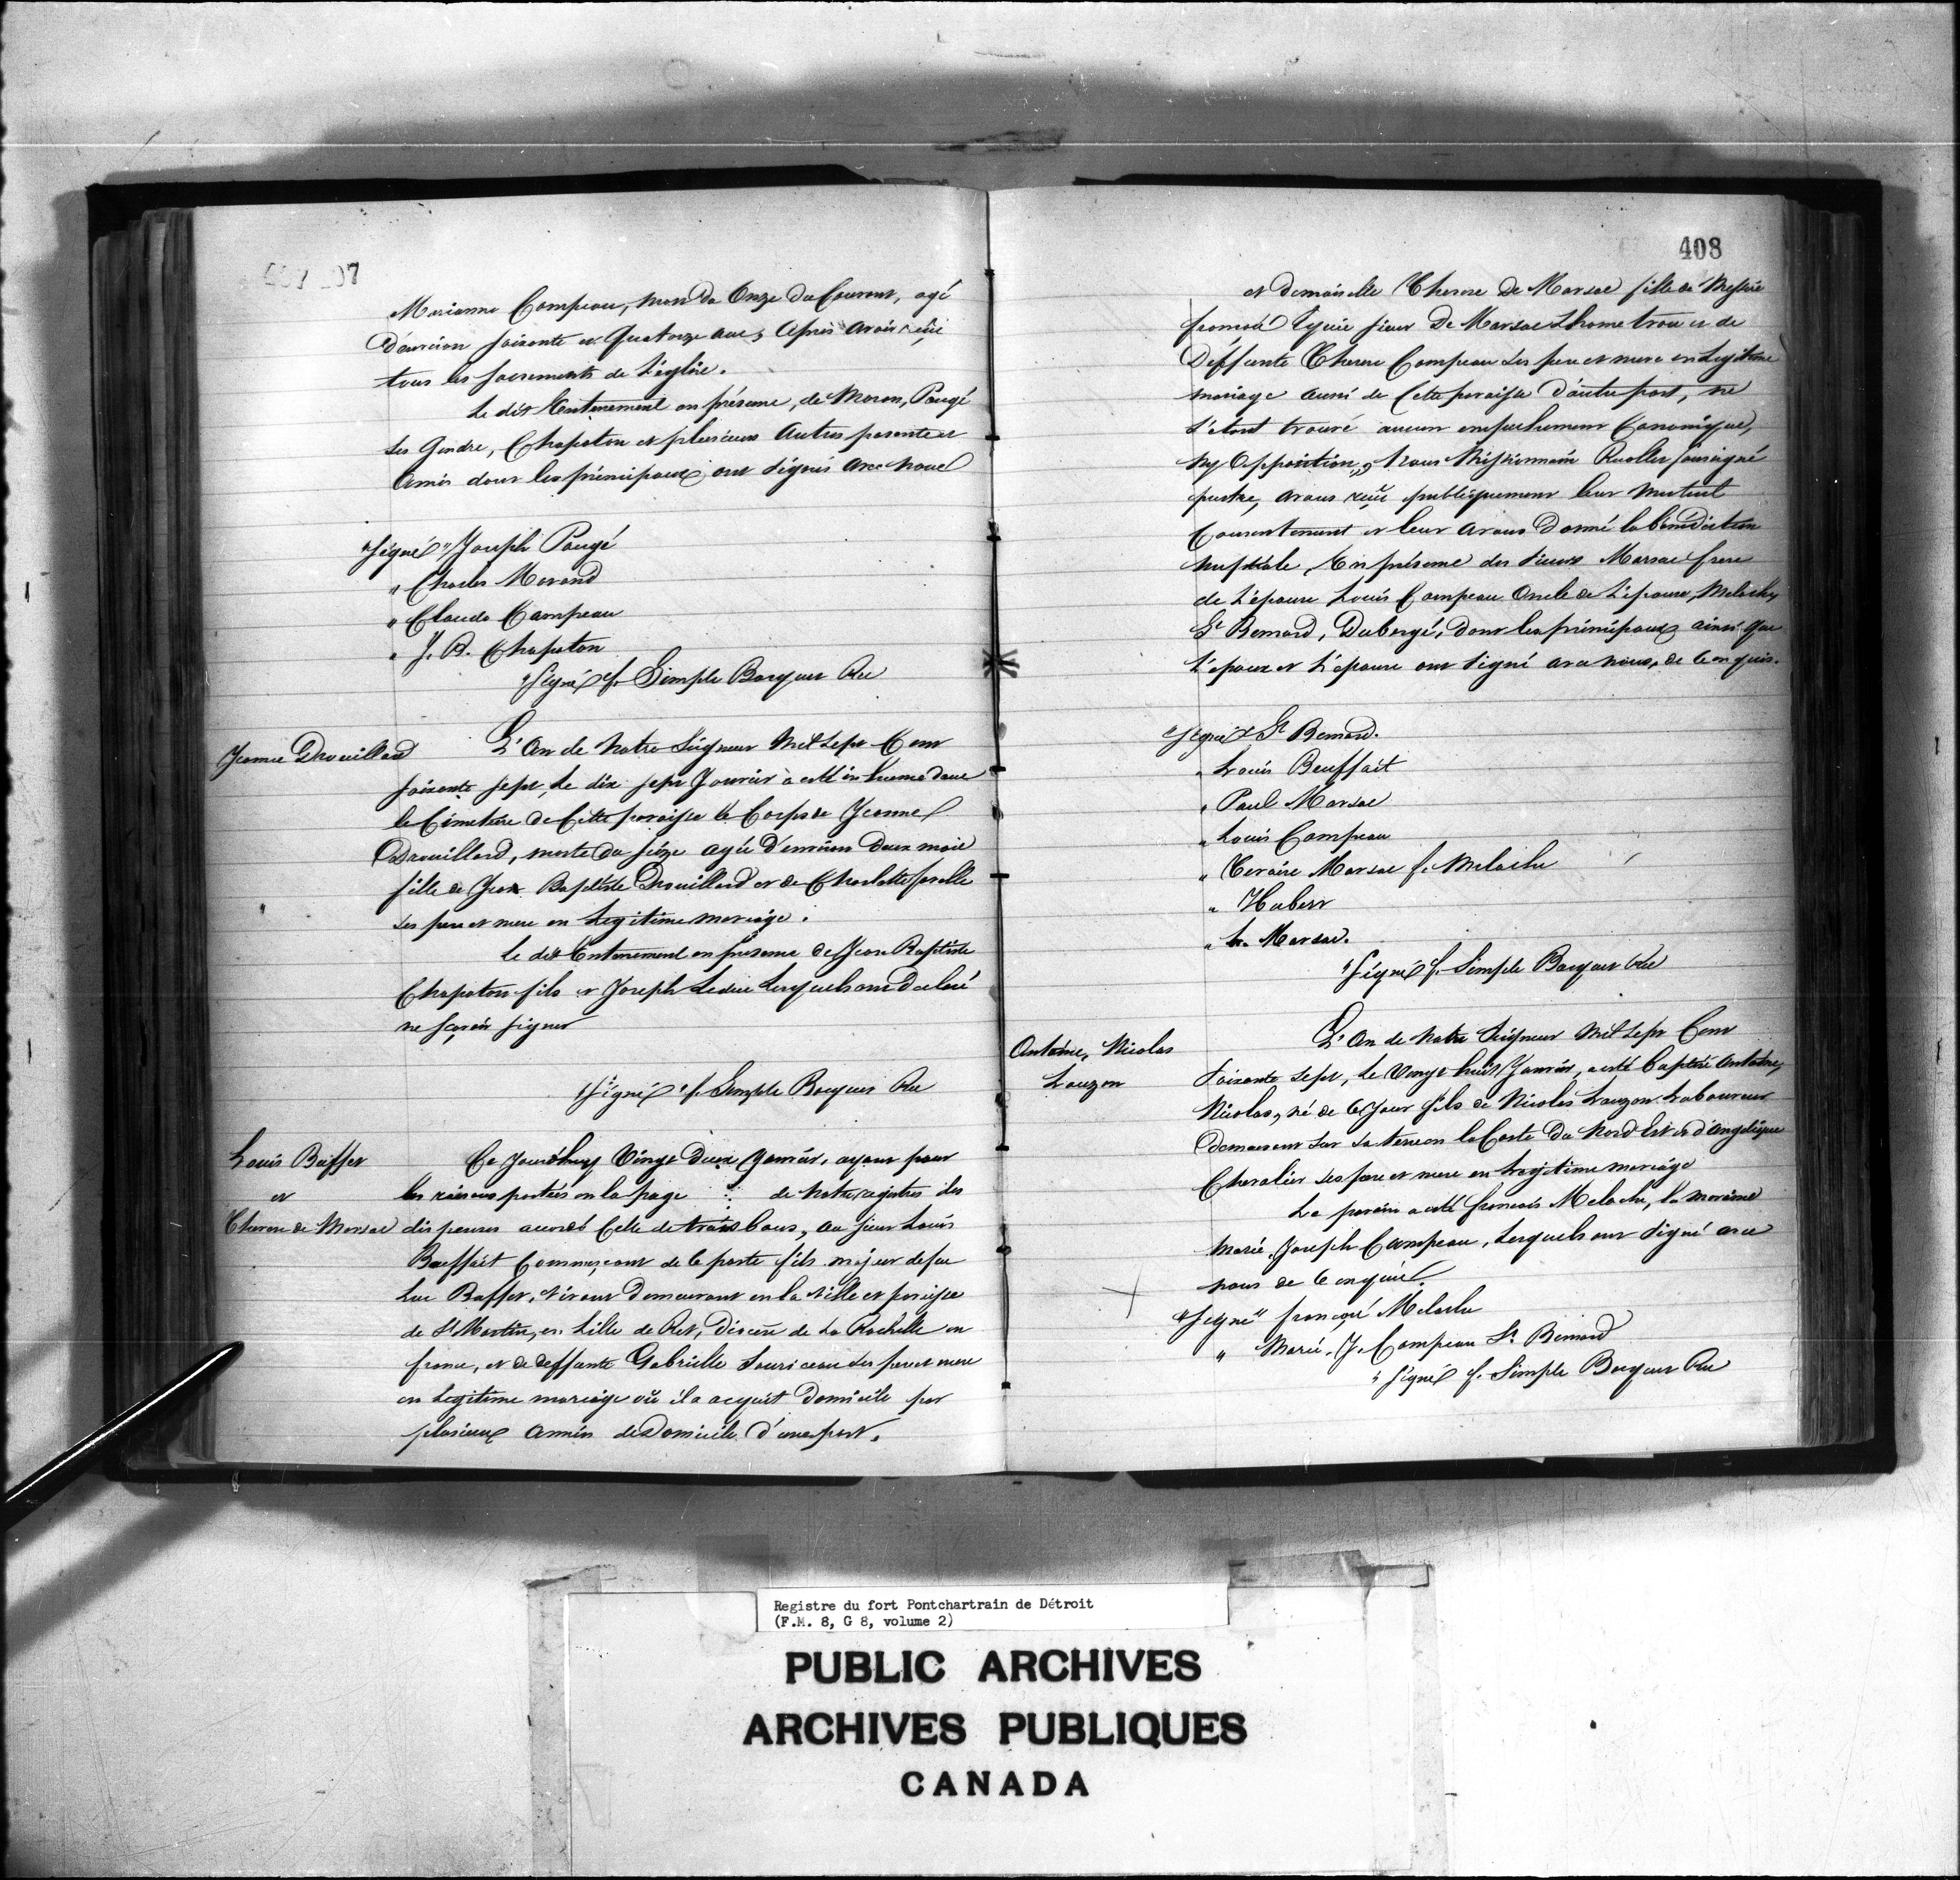 407 07
Marianne Campeau, mort du Onze du Courant, agé
d'environ soixante et Quatorze ans, après avoir reçu
tous les sacrements de L'église.
Le dit Enterrement en présence, de Moran, Paugé
ses Gendre, Chapoton et plusieurs Autres parents et
Amis dont les principaux ont signés avec nous
"Signé" Joseph Paugé
" Charles Morand
" Claude Campeau
" J. B. Chapoton
"Signé f. Simple Bocquet Rec
Jeanne Drouillard
L'An de Notre Seigneur Mil Sept Cent
soixante sept, Le dix sept Janvier a esté inhumé dans
le Cimetière de Cette paroisse le Corps de Jeanne
Drouillard, morte du seize agée d'environ deux mois
fille de Jean Baptiste Drouillard et de Charlotte
ses pere et mere en Legitime mariage.
Le dit Enterrement en presence de Jean Baptiste
Chapoton fils et Joseph Leduc Lesquels ont declaré
ne sçavoir signer
"Signé" f. Simple Bocquet Rec
Louis Buffet
et
Therese de Marsac
Ce Jourdhuy Vingt Deux Janvier, ayant pour
les raisons portées en la page de notre registre des
dispenses accordé Celle de trois bans, au sieur Louis
Beuffait Commerçant de ce poste fils majeur de feu
Luc Buffet, vivant demeurant en la ville et paroisse
de St Martin, en Lille de Ret, Diocese de La Rochelle en
france, et de deffunte Gabrielle Souriceau ses pere et mere
en Legitime mariage où il a acquit Domicile par
plusieurs années de Domicile d'une part.
408
et demoiselle Therese De Marsac fille de Messire
françois Ecuier sieur De Marsac Lhometrou et de
Deffunte Therese Campeau ses pere et mere en Legitime
mariage aussi de Cette paroisse d'autre part, ne
s'etant trouvé aucun empechement Canonique,
ny Opposition, Nous Missionnaire Recollet soussigné
prestre, avons reçu publiquement leur mutuel
Consentement et leur avons Donné la bénédiction
nuptiale En présence des sieurs Marsac frere
de L'épouse Louis Campeau Oncle de L'épouse, Meloche,
St Bernard, Dubergé, dont les principaux ainsi que
L'époux et L'épouse ont signé avec nous, de ce enquis.
"Signé" St Bernard.
" Louis Beuffait
" Paul Marsac
" Louis Campeau
" Marsac f. Meloche
" Hubert
" Marsac.
"Signé f. Simple Bocquet Rec
Antoine, Nicolas
Lauzon
L'An de Notre Seigneur Mil Sept Cent
Soixante Sept, Le Vingt huit Janvier, a esté baptisé Antoine,
Nicolas, né de ce Jour fils de Nicolas Lauzon Laboureur
demeurant sur sa terre en la Coste du Nord Est et d'Angelique
Chevalier ses pere et mere en Legitime mariage
Le parain a esté francois Meloche, la maraine
Marie Joseph Campeau, Lesquels ont signé avec
nous de ce enquis.
"Signé" françois Meloche
" Marie. J. Campeau St Bernard
" Signé f. Simple Bocquet Rec
Registre du fort Pontchartrain de Détroit
(F.M. 8, G 8, volume 2)
PUBLIC ARCHIVES
ARCHIVES PUBLIQUES
CANADA